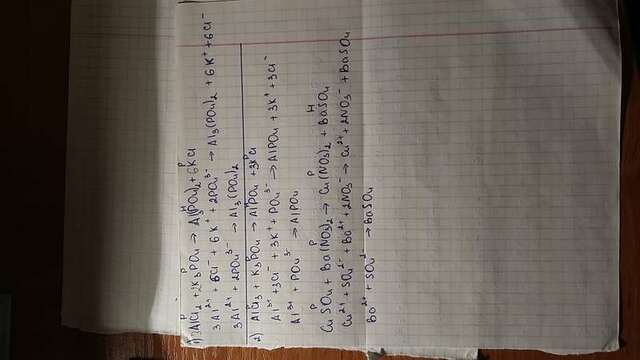 P P H P
1) 3AlCl₂ + 2K₃PO₄ → Al₃(PO₄)₂ + 6KCl
3Al²⁺ + 6Cl⁻ + 6K⁺ + 2PO₄³⁻ → Al₃(PO₄)₂ + 6K⁺ + 6Cl⁻
3Al²⁺ + 2PO₄³⁻ → Al₃(PO₄)₂
2) AlCl₃ + K₃PO₄ → AlPO₄ + 3KCl
Al³⁺ + 3Cl⁻ + 3K⁺ + PO₄³⁻ → AlPO₄ + 3K⁺ + 3Cl⁻
Al³⁺ + PO₄³⁻ → AlPO₄
P P P H
CuSO₄ + Ba(NO₃)₂ → Cu(NO₃)₂ + BaSO₄
Cu²⁺ + SO₄²⁻ + Ba²⁺ + 2NO₃⁻ → Cu²⁺ + 2NO₃⁻ + BaSO₄
Ba²⁺ + SO₄²⁻ → BaSO₄